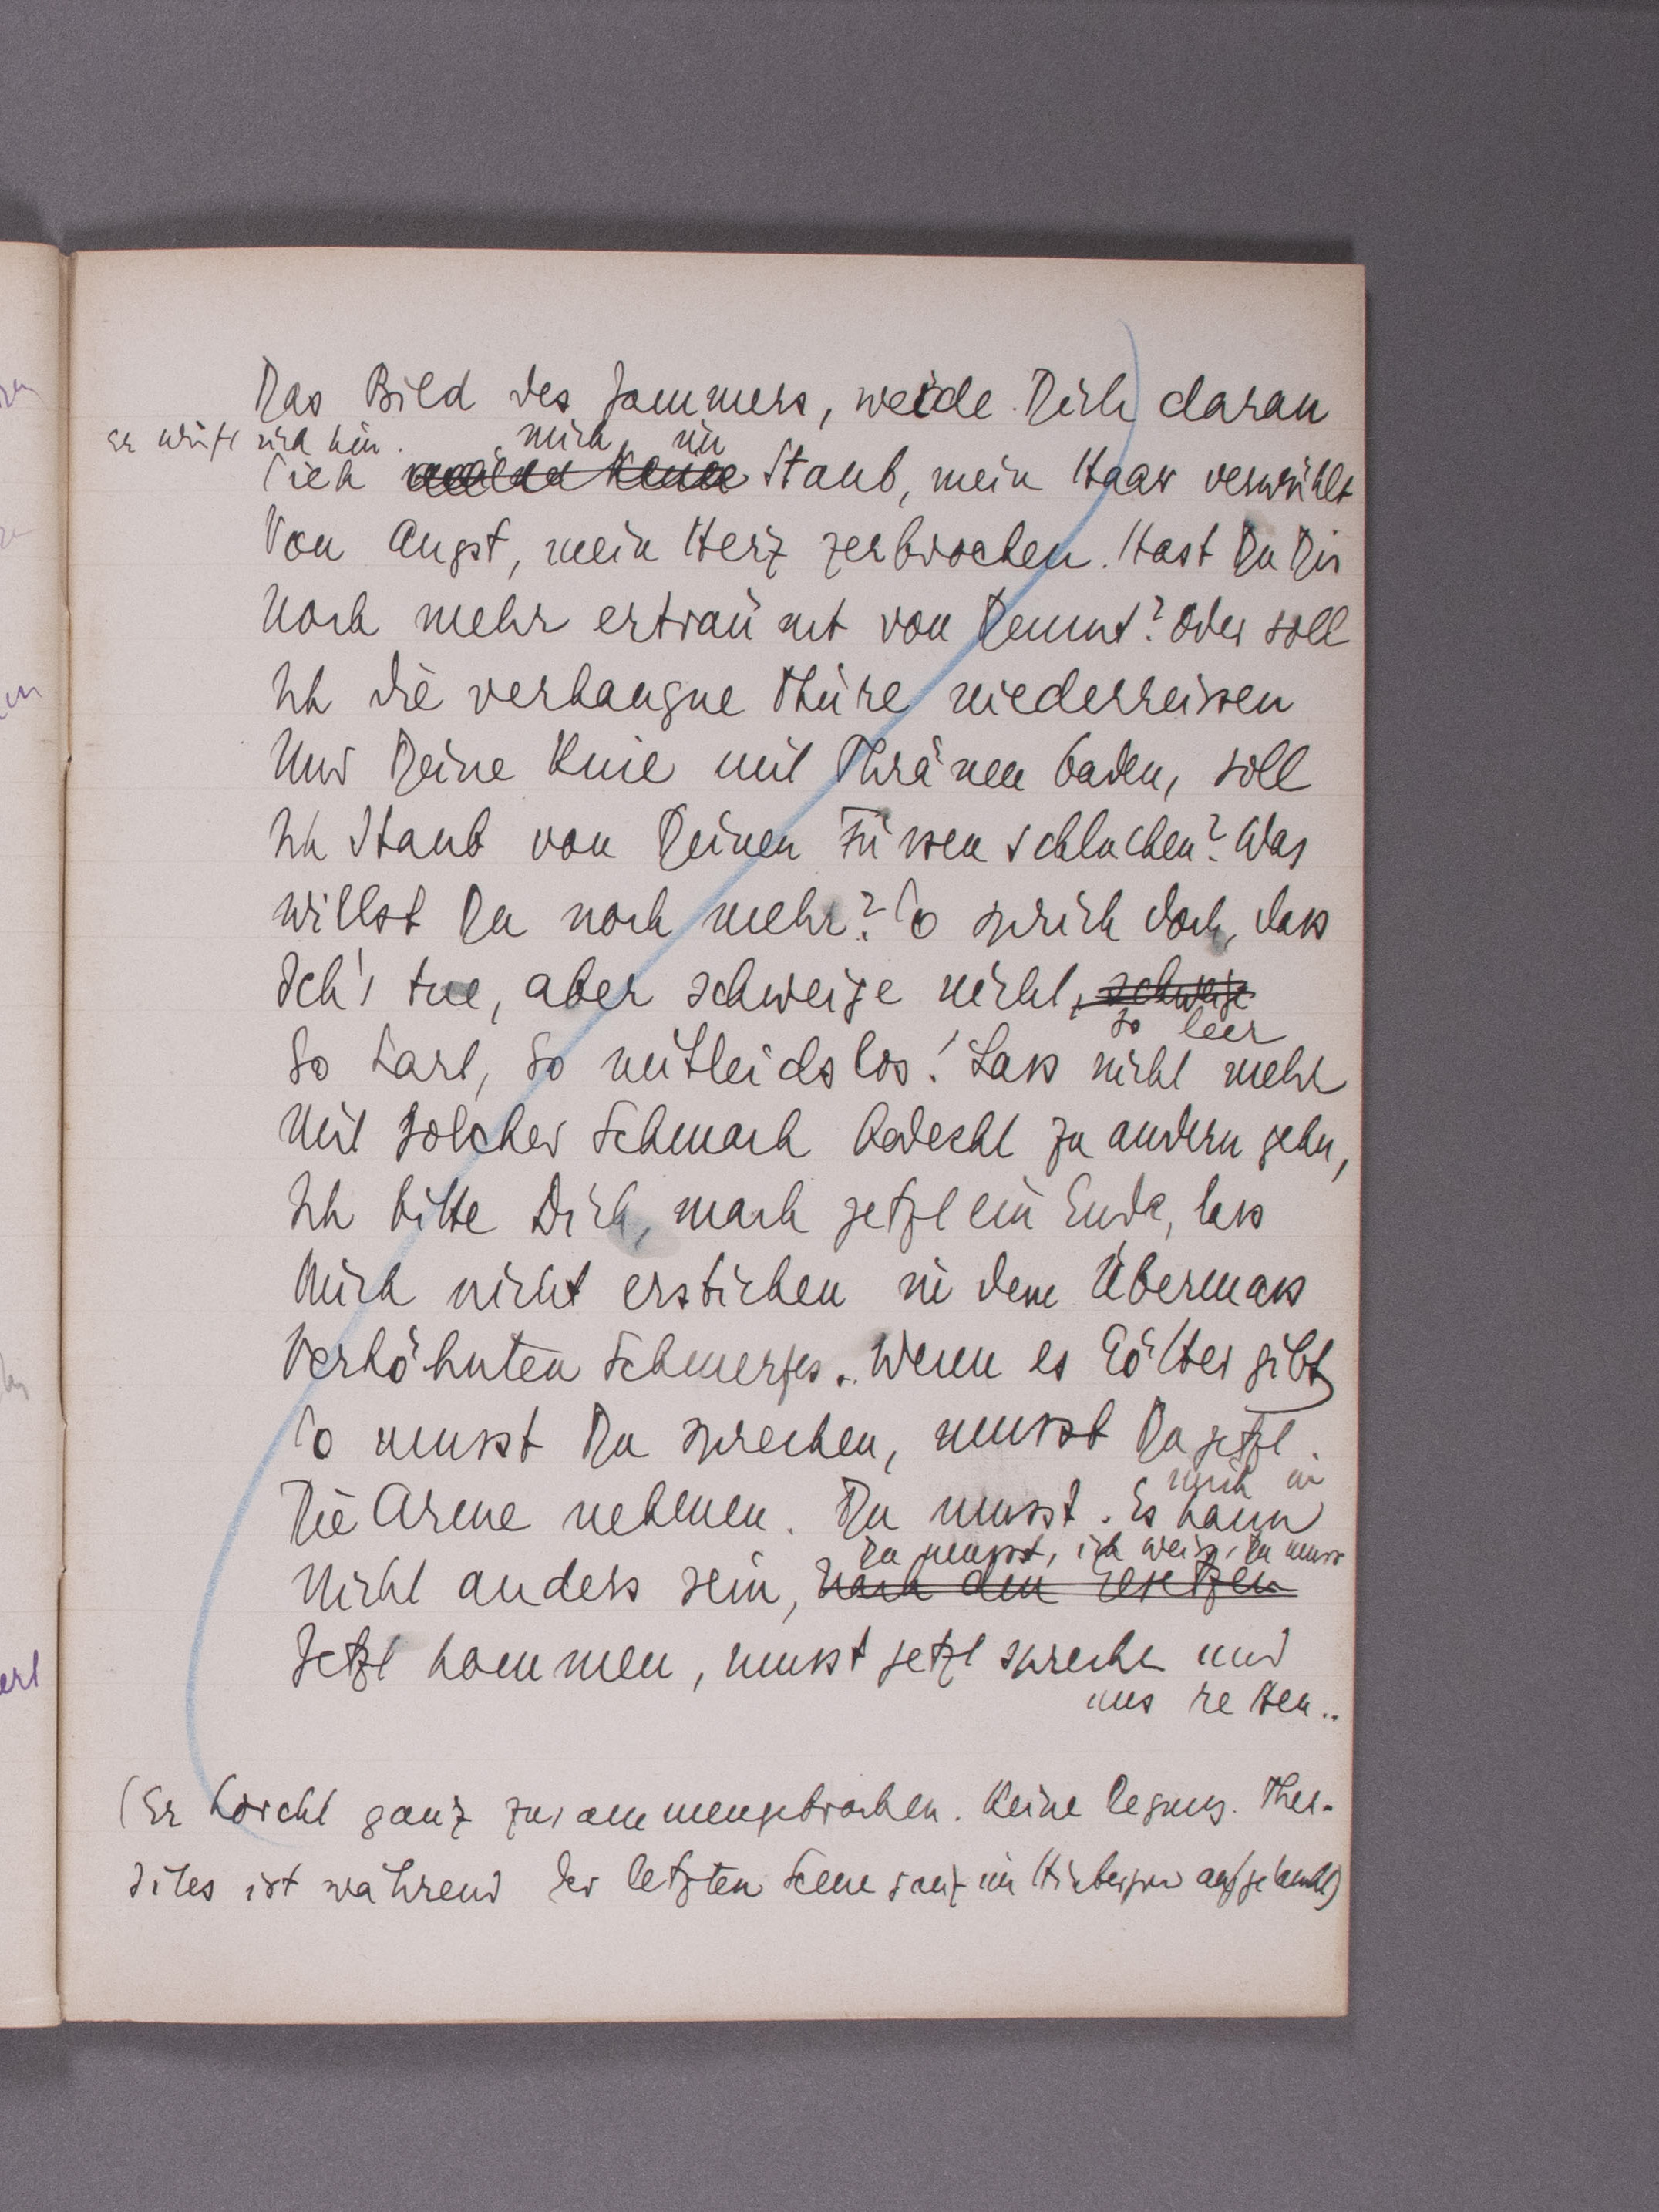 Das Bild des Jammers, weide Dich daran
Er wirft sich hin.
mich im
Sieh Staub, mein Haar verwühlt
Von Angst, mein Herz zerbrochen. Hast Du Dir
Noch mehr erträumt von Demut? Oder soll
Ich die verhangne Thüre niederreissen
Und Deine Knie mit Thränen baden, soll
Ich Staub von Deinen Füssen schlucken? Was
willst Du noch mehr? So sprich doch, dass
Ich's tue, aber schweige nicht, schweige
so leer
So hart, so mitleidslos! Lass nicht mehr
Mit solcher Schmach bedeckt zu andern gehn,
Ich bitte Dich, mach jetzt ein Ende, lass
Mich nicht ersticken in dem Übermass
Verhöhnten Schmerzes. Wenn es Götter gibt
So musst Du sprechen, musst Du jetzt
mich in
Die Arme nehmen. Du musst. Es kann
Du musst, ich weiss, Du muss
Nicht anders sein, nach den Gesetzen
Jetzt kommen, musst jetzt sprechen und
uns retten..
(Er horcht ganz zusammengebrochen. Keine Regung. Ther-
sites ist während der letzten Scene ganz im Hintergrund aufgetaucht)